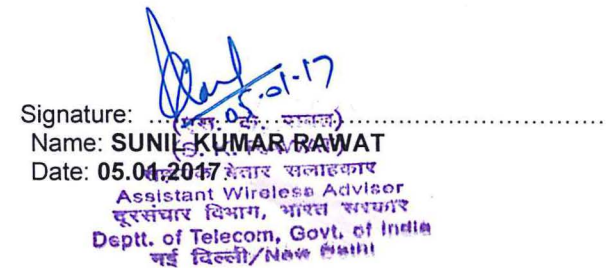 05-01-17
Signature: ........................................................
(एस. के. रावत)
Name: SUNIL KUMAR RAWAT
Date: 05.01.2017
बेतार सलाहकार
Assistant Wireless Advisor
दूरसंचार विभाग, भारत सरकार
Deptt. of Telecom, Govt. of India
नई दिल्ली/New Delhi